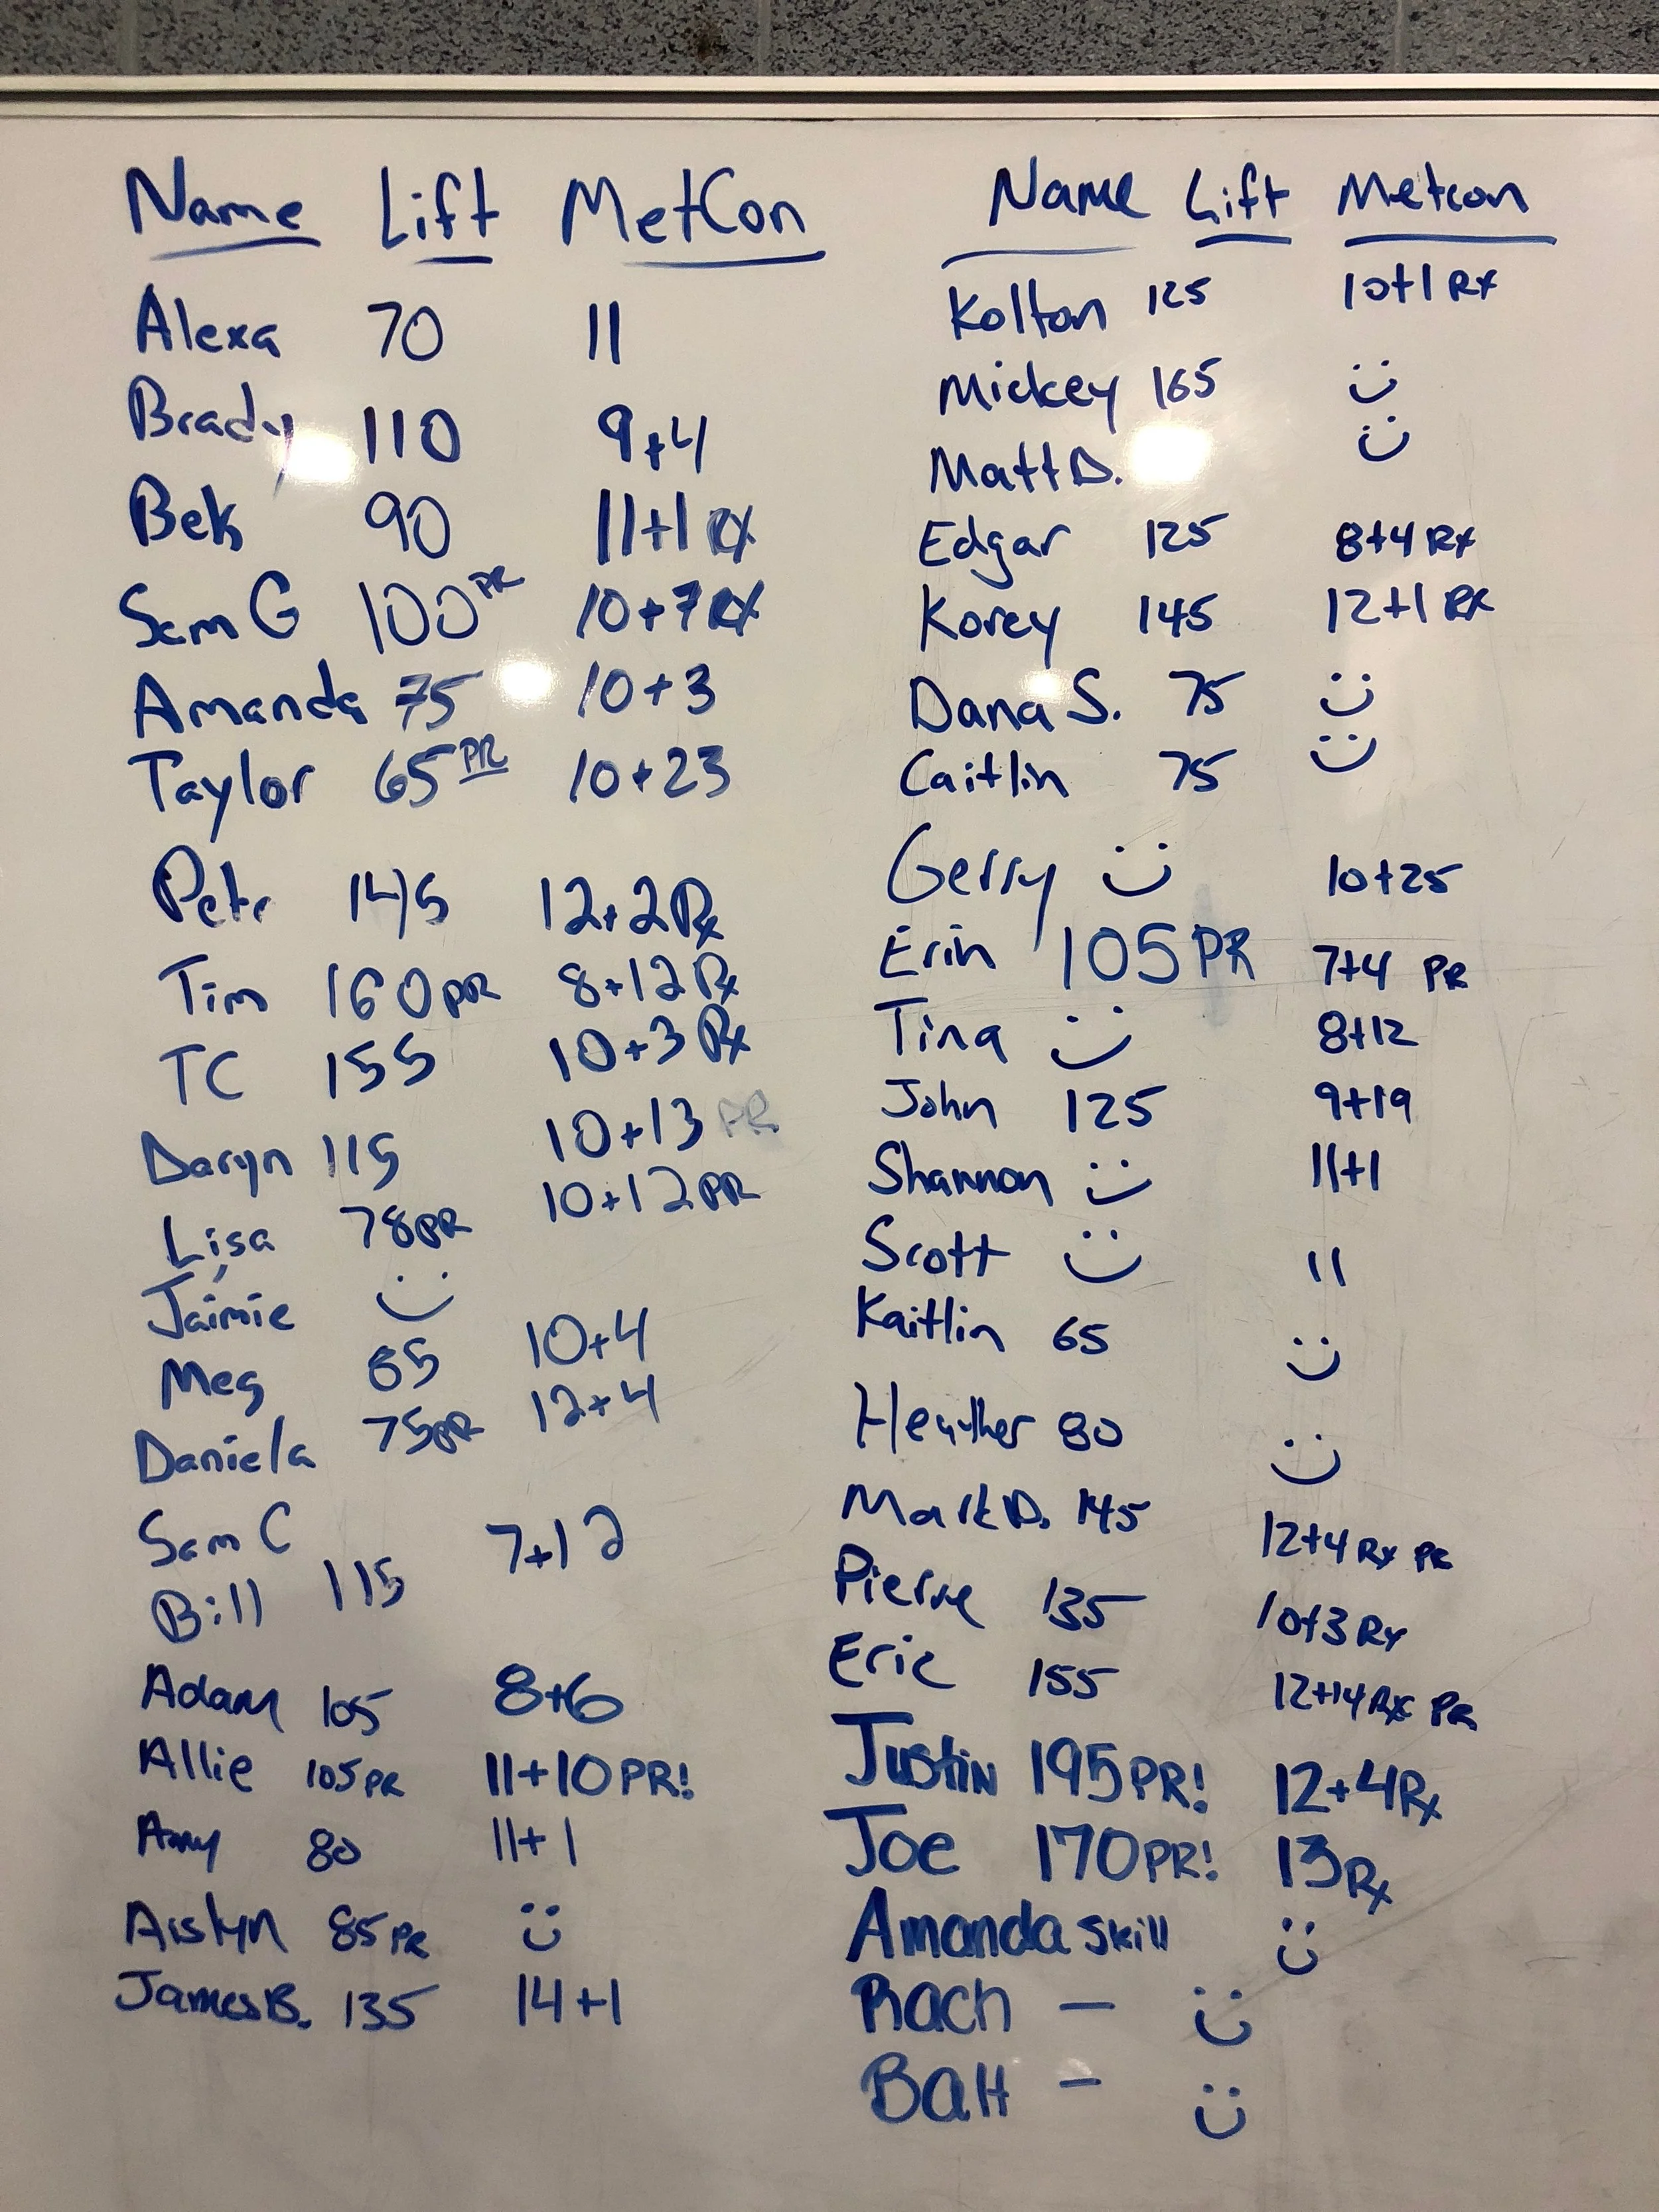 Name Lift MetCon
Alexa 70 11
Brady 110 9+4
Bek 90 11+1 Rx
Sam G 100 PR 10+7 Rx
Amanda 75 10+3
Taylor 65 PR 10+23
Pete 145 12+2 Rx
Tim 160 PR 8+12 Rx
TC 155 10+3 Rx
Daryn 115 10+13 PR
Lisa 78 PR 10+12 PR
Jaimie :)
Meg 85 10+4
Daniela 75 PR 12+4
Sam C
Bill 115 7+12
Adam 105 8+6
Allie 105 PR 11+10 PR!
Amy 80 11+1
Aislyn 85 PR :)
James B. 135 14+1
Name Lift Metcon
Kolton 125 10+1 Rx
Mickey 165 :)
Matt D. :)
Edgar 125 8+4 Rx
Korey 145 12+1 Rx
Dana S. 75 :)
Caitlin 75 :)
Gerry :) 10+25
Erin 105 PR 7+4 PR
Tina :) 8+12
John 125 9+19
Shannon :) 11+1
Scott :) 11
Kaitlin 65 :)
Heather 80 :)
Mark D. 145 12+4 Rx PR
Pierre 135 10+3 Rx
Eric 155 12+14 Rx PR
Justin 195 PR! 12+4 Rx
Joe 170 PR! 13 Rx
Amanda skill :)
Rach — :)
 — :)